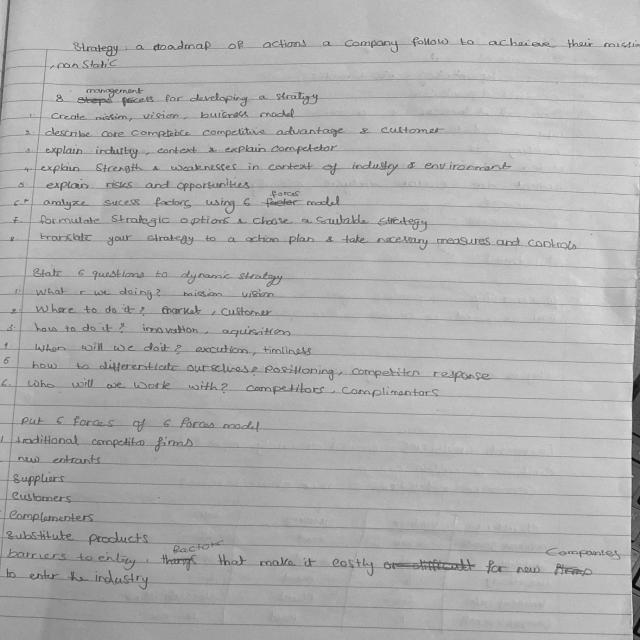 Strategy, a roadmap of actions a company follow to acheieve their missi
, non static
management
8 steps proces for developing a stratigy
1. create missim, vision, buisness model
2. describe core comptence competitive advantage & customer
3. explain industry, context & explain competetor
4. explain strength & weaknesses in context of industry & environment
5 explain risks and opportunities
forces
6. analyze sucess factors, using 6 factor model
7. formulate strategic options & choose a suitable strategy
8. translate your strategy to a action plan & take necessary measures and controls
State 6 questions to dynamic strategy
1. what r we doing? mission vision
2. Where to do it? market, customer
3. how to do it? innovation, aquisition
4 When will we do it? excution, timliness
5 how to differentiate ourselves? positioning, competiter response
6. Who will we work with? competitors, complimentors
put 6 forces of 6 forces model
1. traditional competitor firms
new entrants
suppliers
customers
complementers
substitute products
factors companies
barriers to entry, things that make it costly or difficult for new firms
to enter the industry